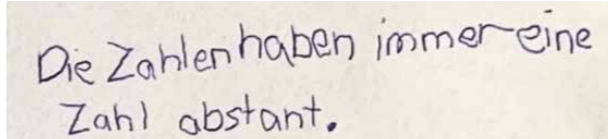 Die Zahlen haben immer eine
Zahl abstant.